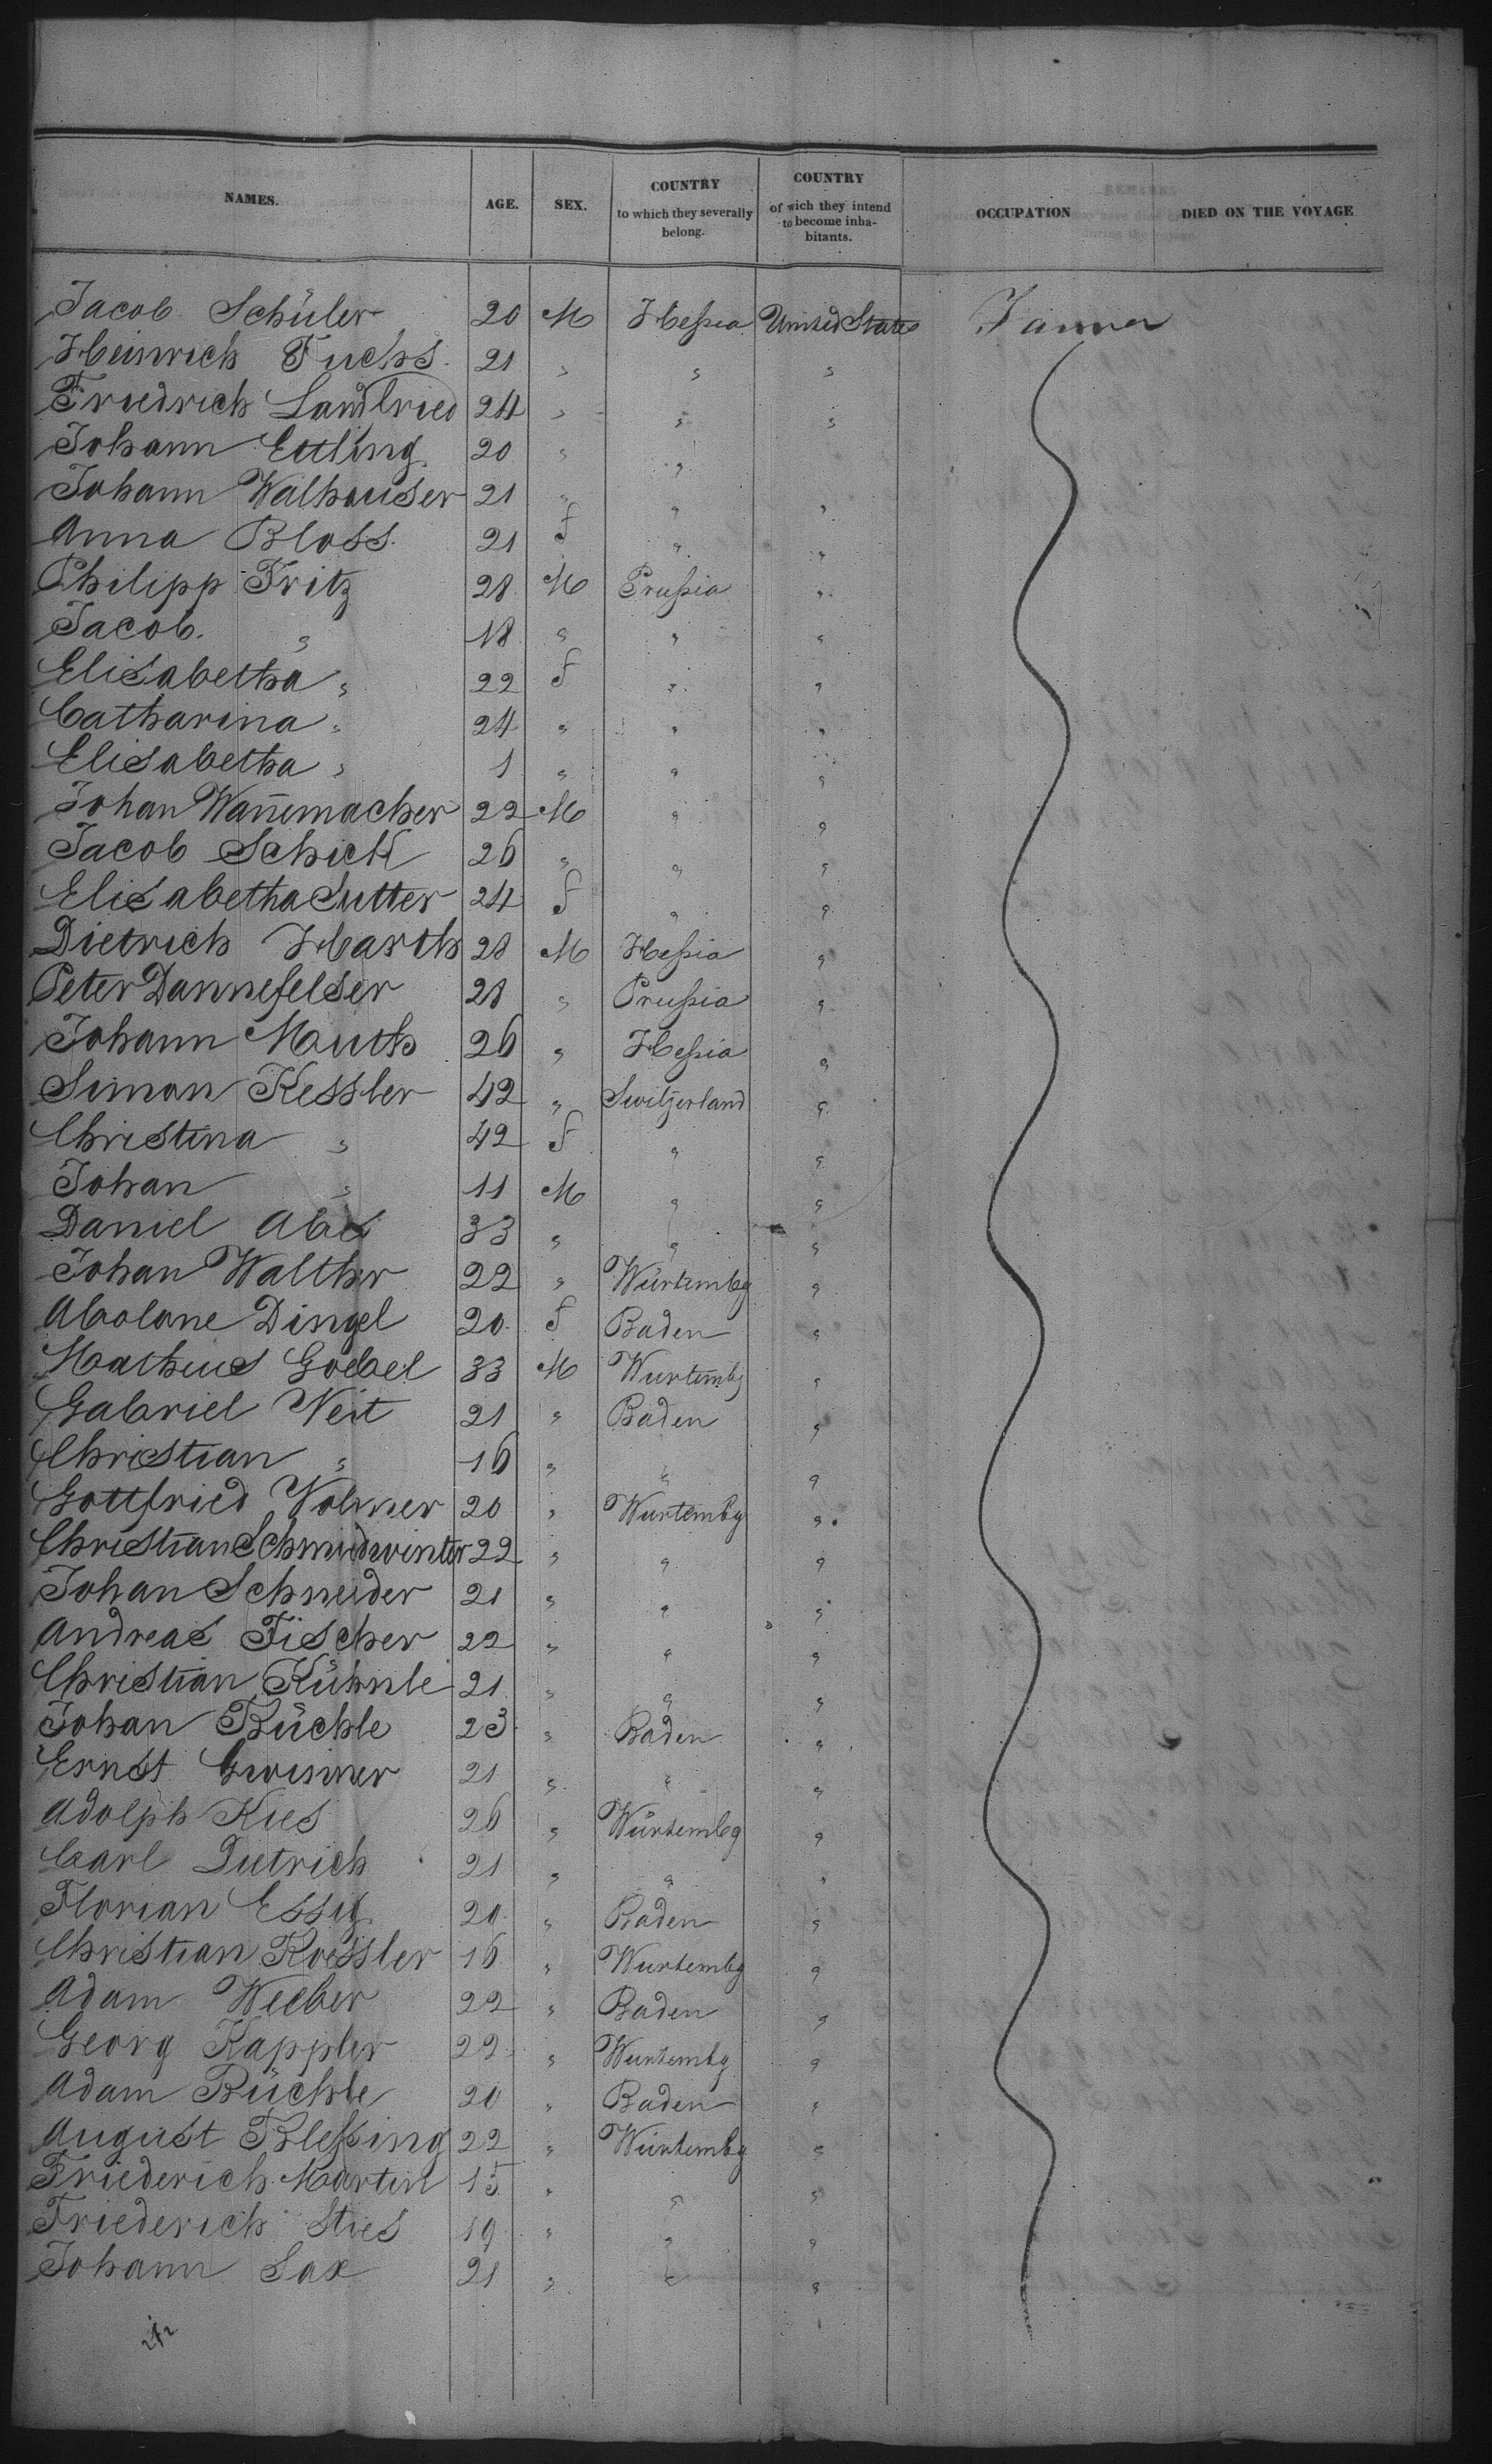 NAMES. AGE. SEX. COUNTRY to which they severally belong. COUNTRY of wich they intend to become inhabitants. OCCUPATION DIED ON THE VOYAGE
Jacob Schüler 20 M Hessia United States Farmer
Heinrich Fuchs 21 " " "
Friedrich Landfried 24 " " "
Johann Ettling 20 " "
Johann Walhauser 21 " " "
Anna Bloss. 21 f " "
Philipp Fritz 28 M Prussia "
Jacob. " 18 " " "
Elisabetha " 22 f " "
Catharina " 24 " " "
Elisabetha " 1 " " "
Johan Wan̄emacher 22 M " "
Jacob Schick 26 " " "
Elisabetha Sutter 24 f " "
Dietrich Harth 28 M Hessia "
Peter Dannefelser 28 " Prussia "
Johann Muth 26 " Hessia "
Simon Kessler 42 " Switzerland "
Christina " 42 f " "
Johan " 11 M " "
Daniel 33 " " "
Johan Walther 22 " Würtembg "
Dingel 20 f Baden "
Matheus Goebel 33 M Wurtembg "
Gabriel Veit 21 " Baden "
Christian " 16 " " "
Gottfried Volmer 20 " Wurtembg "
Christian Schmidwinter 22 " " "
Johan Schneider 21 " " "
Andreas Fischer 22 " " "
Christian Kühnle 21 " " "
Johan Büchle 23 " Baden "
Ernst 21 " " "
Adolph Kies 26 " Würtembg "
Carl Dietrich 21 " " "
Florian Essig 20 " Baden "
Christian Roessler 16 " Wurtembg "
Adam Weeber 22 " Baden "
Georg Kappler 22 " Wurtembg "
Adam Büchle 20 " Baden "
August Blessing 22 " Würtembg "
Friederich Martin 15 " " "
Friederich Sties 19 " " "
Johann Sax 21 " " "